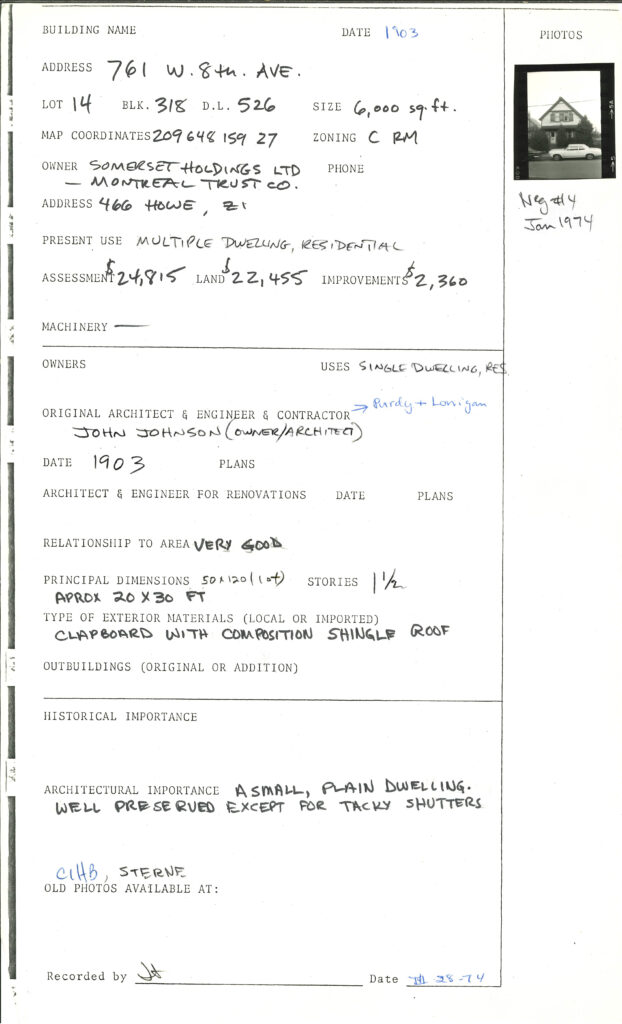 BUILDING NAME DATE 1903 PHOTOS
ADDRESS 761 W. 8th. AVE.
LOT 14 BLK. 318 D.L. 526 SIZE 6,000 sq.ft.
MAP COORDINATES 209 648 159 27 ZONING C RM
OWNER SOMERSET HOLDINGS LTD PHONE
— MONTREAL TRUST CO.
ADDRESS 466 HOWE, Z1
Neg #14
Jan 1974
PRESENT USE MULTIPLE DWELLING, RESIDENTIAL
ASSESSMENT $24,815 LAND $22,455 IMPROVEMENTS $2,360
MACHINERY —
OWNERS USES SINGLE DWELLING, RES.
ORIGINAL ARCHITECT & ENGINEER & CONTRACTOR → Purdy + Lonigan
JOHN JOHNSON (OWNER/ARCHITECT)
DATE 1903 PLANS
ARCHITECT & ENGINEER FOR RENOVATIONS DATE PLANS
RELATIONSHIP TO AREA VERY GOOD
PRINCIPAL DIMENSIONS 50 x 120 (lot) STORIES 1 1/2
APROX 20 X 30 FT
TYPE OF EXTERIOR MATERIALS (LOCAL OR IMPORTED)
CLAPBOARD WITH COMPOSITION SHINGLE ROOF
OUTBUILDINGS (ORIGINAL OR ADDITION)
HISTORICAL IMPORTANCE
ARCHITECTURAL IMPORTANCE A SMALL, PLAIN DWELLING.
WELL PRESERVED EXCEPT FOR TACKY SHUTTERS
CIHB, STERNE
OLD PHOTOS AVAILABLE AT:
Recorded by Date 28-74